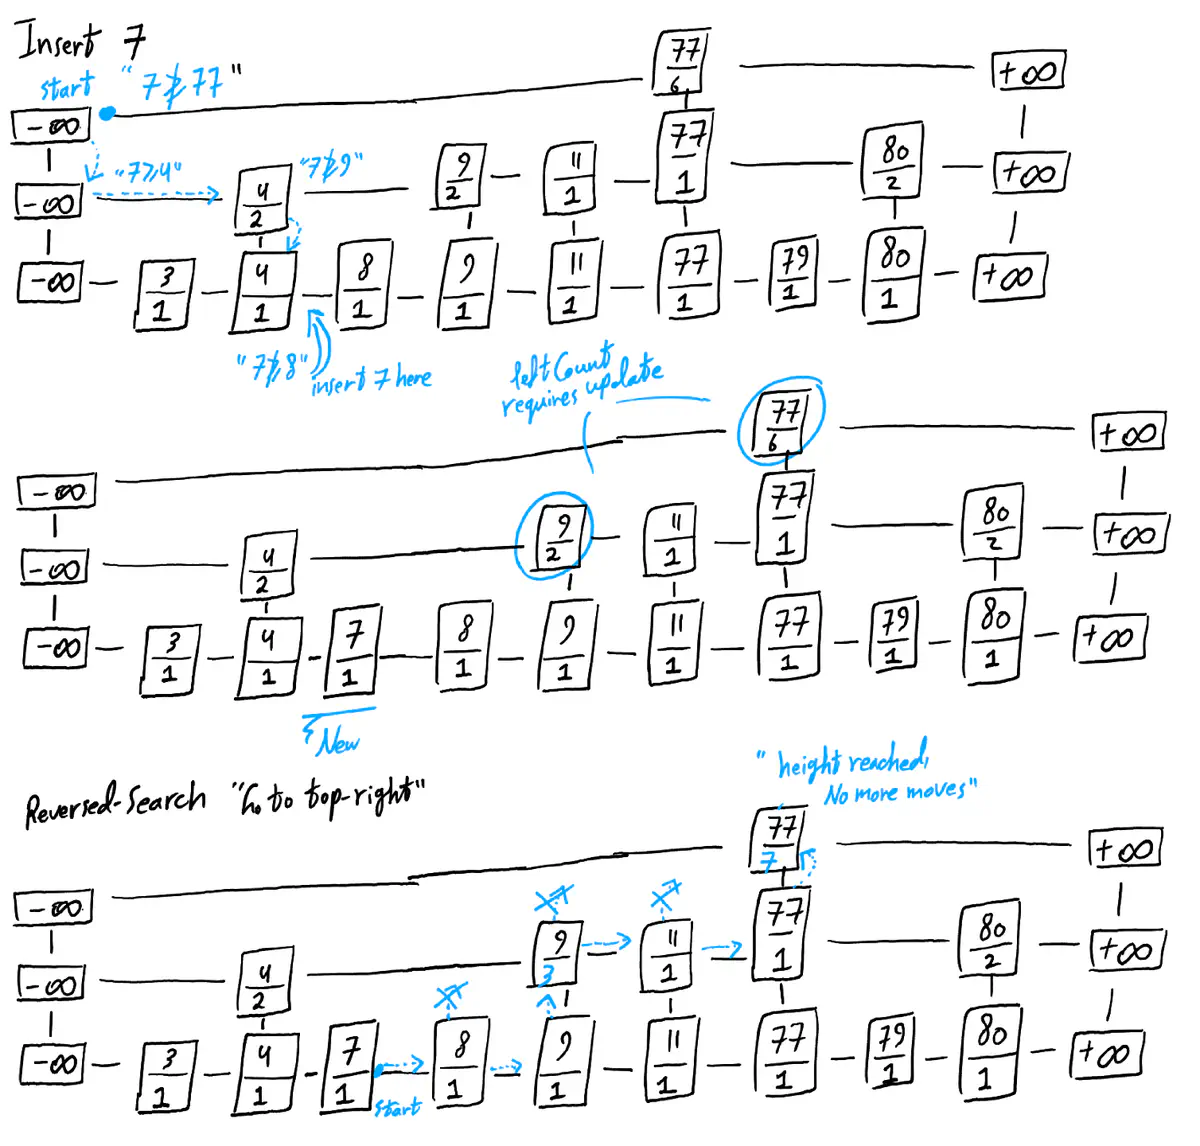 Insert 7
start "7≱77"
77
6
+∞
-∞
"7≥4"
"7≱9"
4
2
9
2
11
1
77
1
80
2
+∞
-∞
-∞
3
1
4
1
8
1
9
1
11
1
77
1
79
1
80
1
+∞
"7≱8"
insert 7 here
leftCount
requires update
77
6
+∞
-∞
-∞
4
2
9
2
11
1
77
1
80
2
+∞
-∞
3
1
4
1
7
1
8
1
9
1
11
1
77
1
79
1
80
1
+∞
New
Reversed-Search "Go to top-right"
"height reached,
No more moves"
77
7
+∞
-∞
-∞
4
2
9
3
11
1
77
1
80
2
+∞
-∞
3
1
4
1
7
1
8
1
9
1
11
1
77
1
79
1
80
1
+∞
start